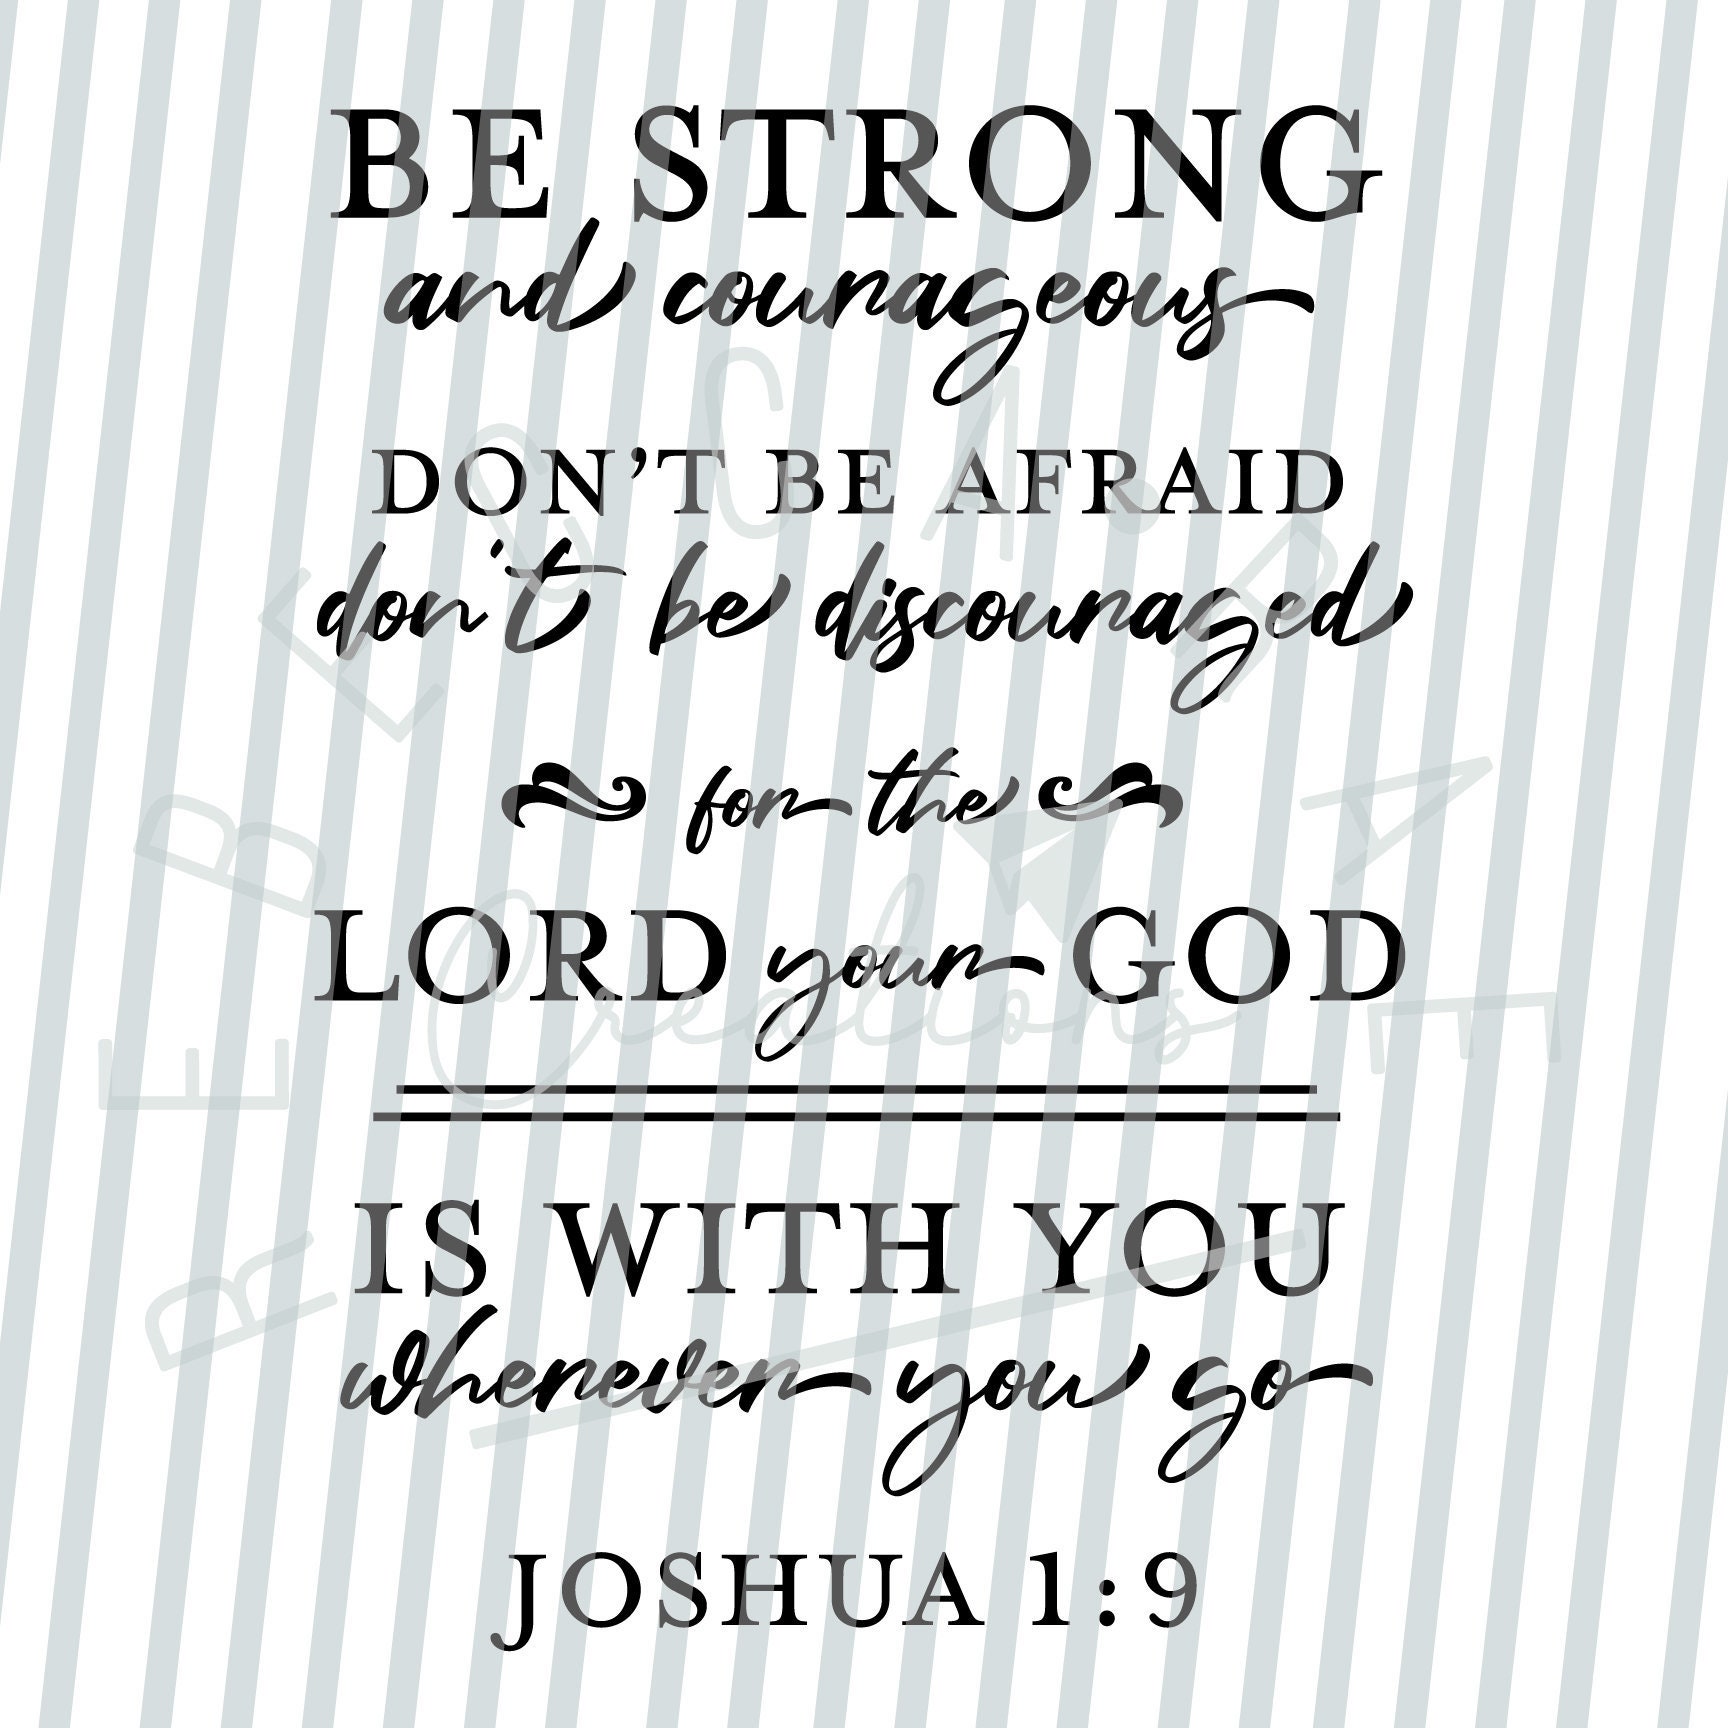 BE STRONG
and courageous
DON'T BE AFRAID
don't be discouraged
for the
LORD your GOD
IS WITH YOU
wherever you go
JOSHUA 1:9
REBECCA RAE
Creations